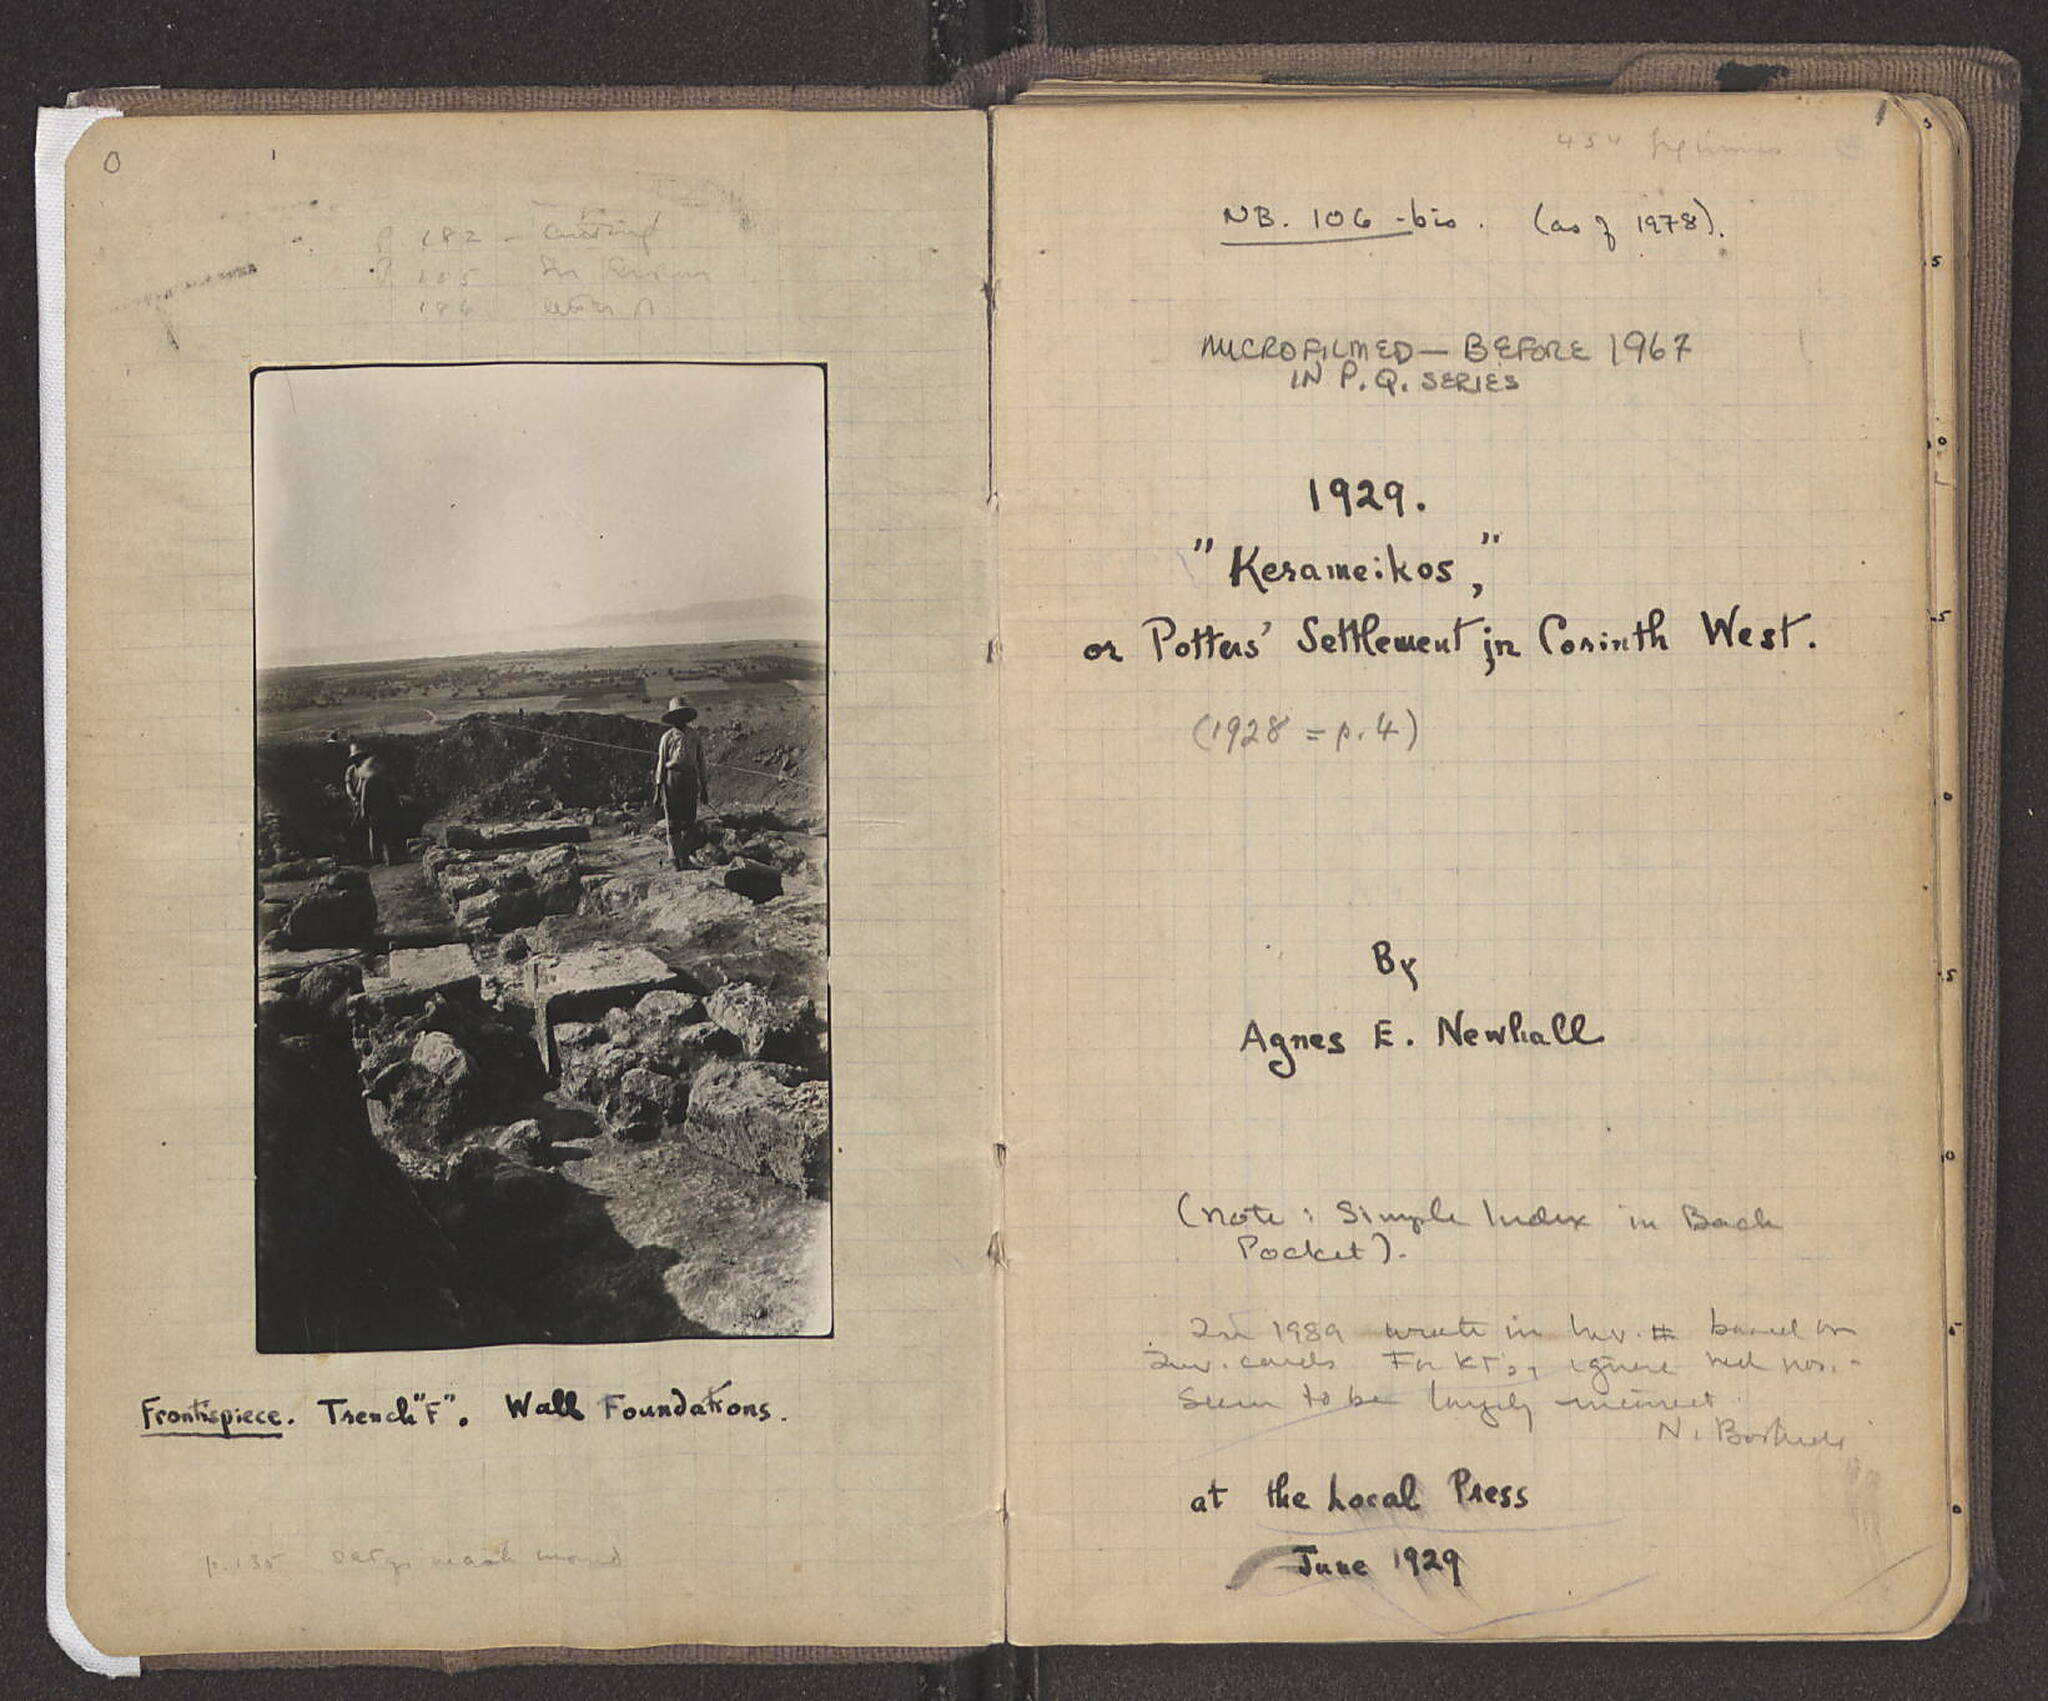 0
p 182 - cutting
P 185
186 letter
Frontispiece. Trench "F". Wall Foundations.
p. 135
1
454
NB. 106-bis. (as of 1978).
MICROFILMED — BEFORE 1967
IN P.Q. SERIES
1929.
"Kerameikos,"
or Potters' Settlement, in Corinth West.
(1928 = p. 4)
By
Agnes E. Newhall
(Note: Simple Index in Back
Pocket).
In 1989 wrote in Inv. # based on
Inv. cards For KT's, ignore red nos. -
Seem to be largely incorrect.
N. Bookidis
at the Local Press
June 1929